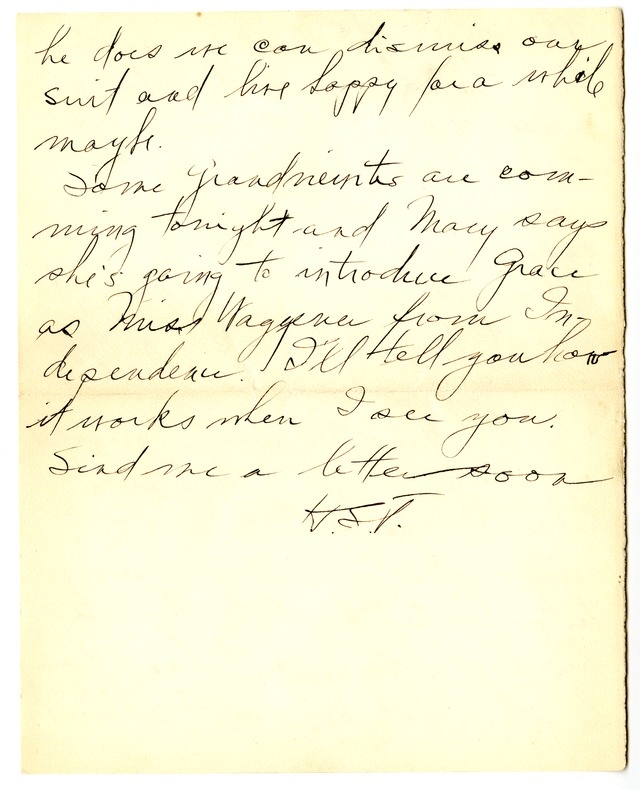 he does we can dismiss our
suit and live happy for a while
maybe.
Some Grandviewites are com-
ming tonight and Mary says
she's going to introduce Grace
as Miss Waggener from In-
dependence. I'll tell you how
it works when I see you.
Send me a letter soon
H.S.T.